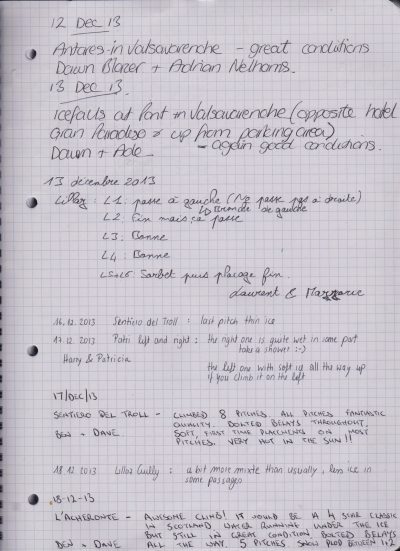 12 Dec 13
Antares in Valsavarenche - great conditions
Dawn Blazer + Adrian Nelhams.
13 Dec 13.
Icefalls at Pont in Valsavarenche (opposite hotel
Gran Paradiso & up from parking area)
Dawn + Ade - again good conditions.
13 décembre 2013
Lillaz : L1: passe à gauche (Ne passe pas à droite)
↳ Branche de gauche
L2: Fin mais ça passe
L3: Bonne
L4: Bonne
L5+L6: Sorbet puis placage fin.
Laurent & Marjorie
16.12.2013 Sentiero del Troll : last pitch thin ice
17.12.2013 Patri left and right : the right one is quite wet in some part
take a shower :-)
Harry & Patricia
the left one with soft ice all the way up
if you climb it on the left
17/DEC/13
SENTIERO DEL TROLL - CLIMBED 8 PITCHES. ALL PITCHES FANTASTIC
QUALITY. BOLTED BELAYS THROUGHOUT,
BEN + DAVE SOFT, FIRST TIME PLACEMENTS ON MOST
PITCHES. VERY HOT IN THE SUN!!
18.12.2013 Lillaz Gully : a bit more mixte than usually, less ice in
some passages
18-12-13
L'ACHERONTE - AWESOME CLIMB! IT WOULD BE A 4 STAR CLASSIC
IN SCOTLAND. WATER RUNNING UNDER THE ICE
BUT STILL IN GREAT CONDITION. BOLTED BELAYS
BEN + DAVE ALL THE WAY. 5 PITCHES. SNOW PLOD BETWEEN 1+2